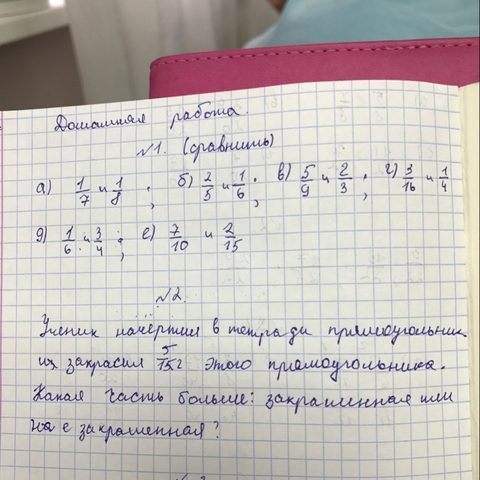 Домашняя работа.
№1. (сравнить)
а) 1/7 и 1/8 ; б) 2/5 и 1/6 ; в) 5/9 и 2/3 ; г) 3/16 и 1/4
д) 1/6 и 3/4 ; е) 7/10 и 2/15
№2.
Ученик начертил в тетради прямоугольник
закрасил этого прямоугольника.
Какая часть больше: закрашенная или
не закрашенная?